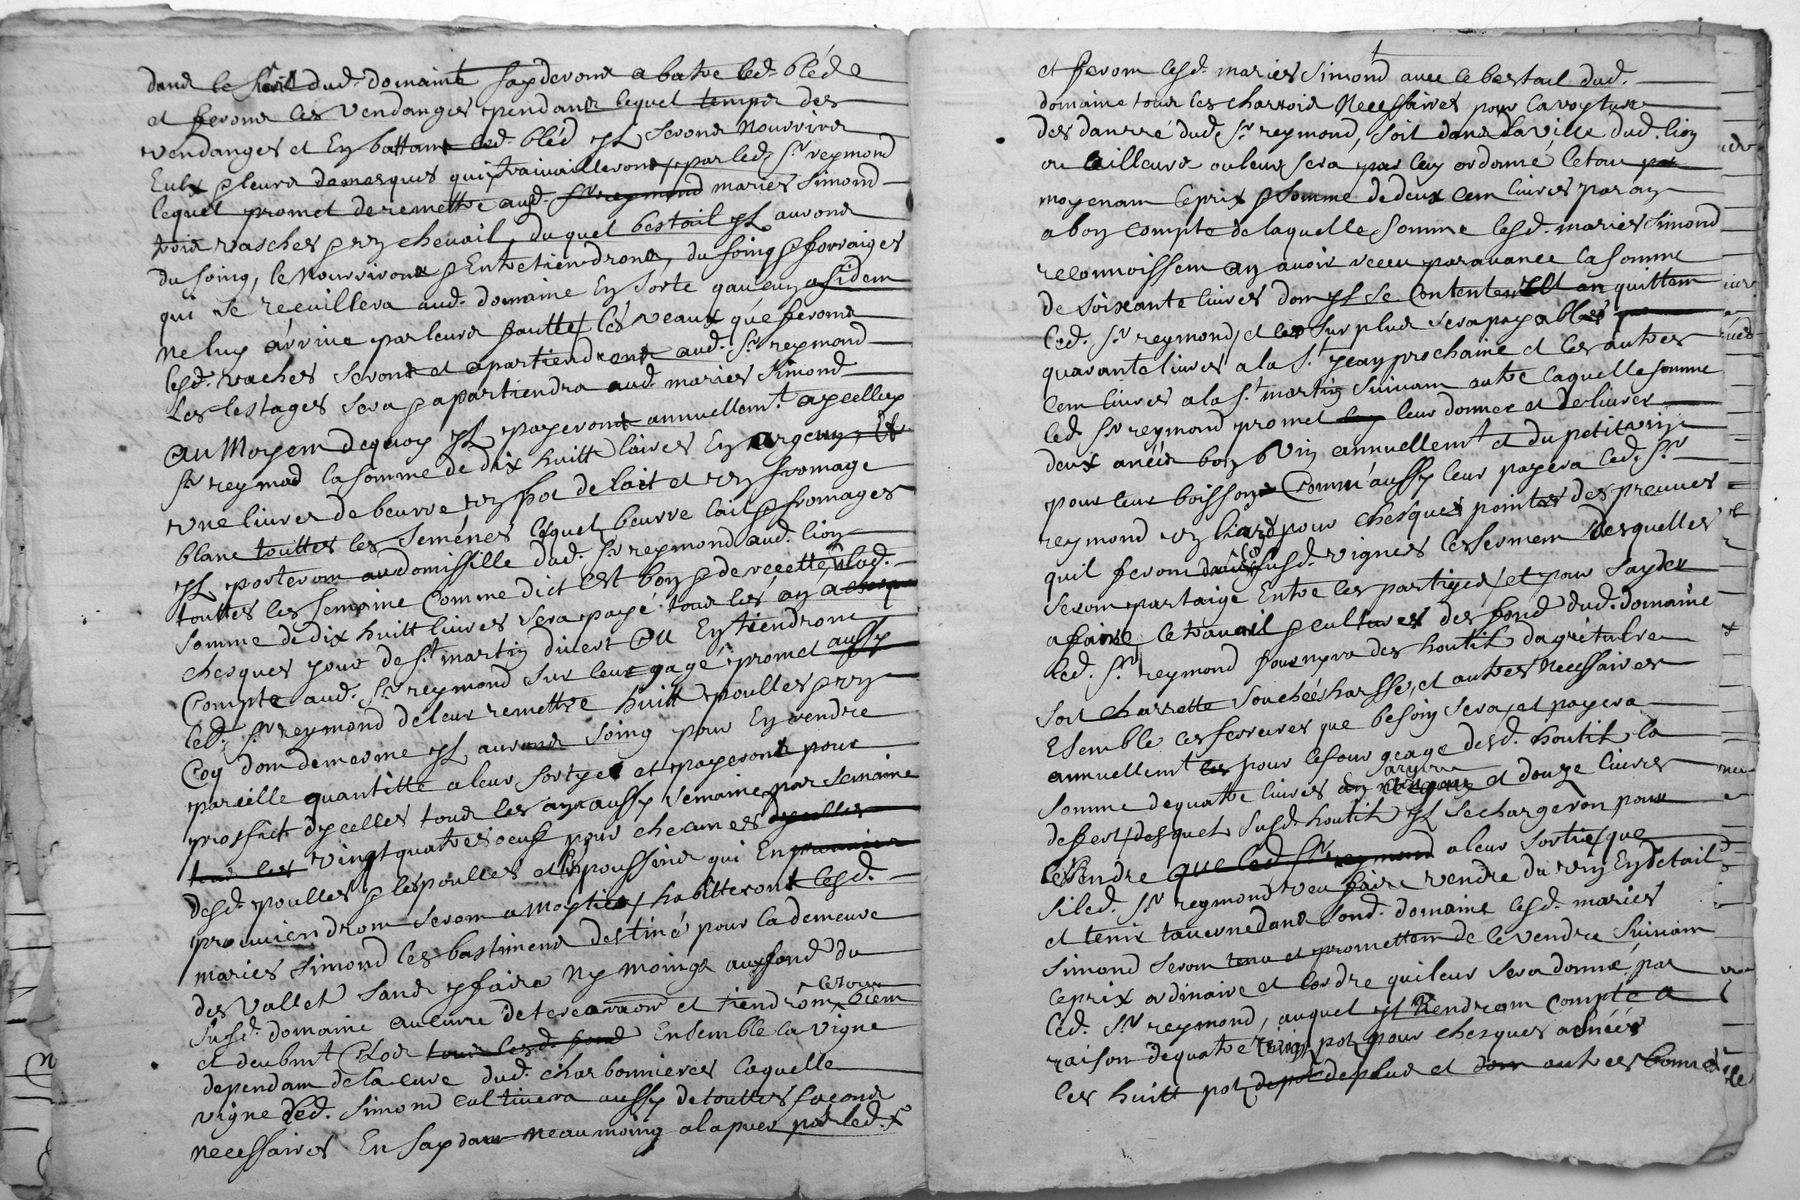 dans le suel dud. domaine saydevons a batre led. bléd e
et ferons les vendanges pendans lequel temps des
vendanges et En battant led. bléd yl serons nourrire
Eulx & leurs qui travailleront par led. Sr reymond
lequel promet de remettre aud. Sr reymond mariés Simond
trois vasches & un chevail, duquel bestail yl aurons
du soing, le nourrirons & Entretiendrons, du foing & forraiges
qui se recuillera aud. domaine En sorte qaucung asidem
ne luy arrive par leurs fautte, les veaux qué feront
lesd. vaches serons et apartiendrons aud. Sr reymond
Les lestages sera & apartiendra aud. mariés Simond
au Moyem dequoy yl payeront annuellemt. aycelluy
Sr reymod la somme de dix huitt livres En argeng, Et
une livres de beurre un pot de lait et un fromage
blanc touttes les semènes lequel beurre lait & fromages
yl porterom au domissille dud. Sr reymond aud. lion
touttes les semaine Comme dict est bon & de recette, lad.
somme de dix huitt livres sera payé tous les an a chesque
chesques jour de St martin divert ou En tiendrom
Compte aud. Sr reymond sur leur gagé promet aussy
led. Sr reymond de leur remettre huitt poulles & un
Coq dom demesme yl aurons soing pour En rendre
pareille quantitté a leur sortye et payerons pour
proffict dycelles tous les an aussy semaine par semaine
tous les vingt quatres oeuf pour checunes dycelles
desd. poulles & les poulles et poussins qui En
prouviendrom serom a moytier, habitterons lesd.
mariés Simond les bastimens destiné pour la demeure
des vallet sans y faire ny moings aux fond du
susd. domaine aucune deterearaon et tiendrom le tour bien
et deubmt. Clos tous lesd. fond Ensemble la vigne
dependam de la cure dud. charbonnieres laquelle
vigne led. Simond cultivera aussy de touttes façons
necessaires En saydam neaumoing a la puer par led. Sr
et ferom lesd. mariés Simond avec le bestail dud.
domaine tous les charrois necessaires pour la voyture
des danrré dud. Sr reymond, soit dans la ville dud. lion
ou ailleurs ou leur sera par luy ordonné, le tou
moyenam le prix & somme de deux cem livres par an
a bon compte de laquelle somme lesd. mariés Simond
reconnoissem an avoir receu par avance la somme
de soixante livres dom yl se Contentent an quittem
led. Sr reymond, et les surplus sera payables
quarante livres a la St jean prochaine et les autres
cem livres a la St martin suivam autre laquelle somme
led. Sr reymond promet leur donner et delivrer
deux anées bon vin annuellemt. et du petit vin
pour leur boisson Comm'aussy leur payera led. Sr
reymond un liard pour chesques pointes des preuves
quil ferom dans susd. vignes les sermen desquelles
serom partaige Entre les partiyes, et pour sayder
a faire le travail & cultures des fond dud. domaine
led. Sr reymond fournyra des houtil dagricultre
soit charrette souchée harsse, et autres necessaires
Esemble les ferrures que besoin sera, et payera
annuellemt. pour lesour geage desd. houtil la
somme de quatre livres et douze livres
deffert, desquel susd. houtil yl se chargeron pour
les Rendre que led. Sr reymond a leur sortie, que
si led. Sr reymond veu faire vendre du vin En detail
et tenir taverne dans sond. domaine lesd. mariés
Simond serom tenu et promettom de le vendre suivam
le prix ordinaire et lordre qui leur sera donné par
led. Sr reymond, auquel yl Rendrom compte a
raison de quatre vingt pot pour chesques annéés
les huitt pot de plus et autres